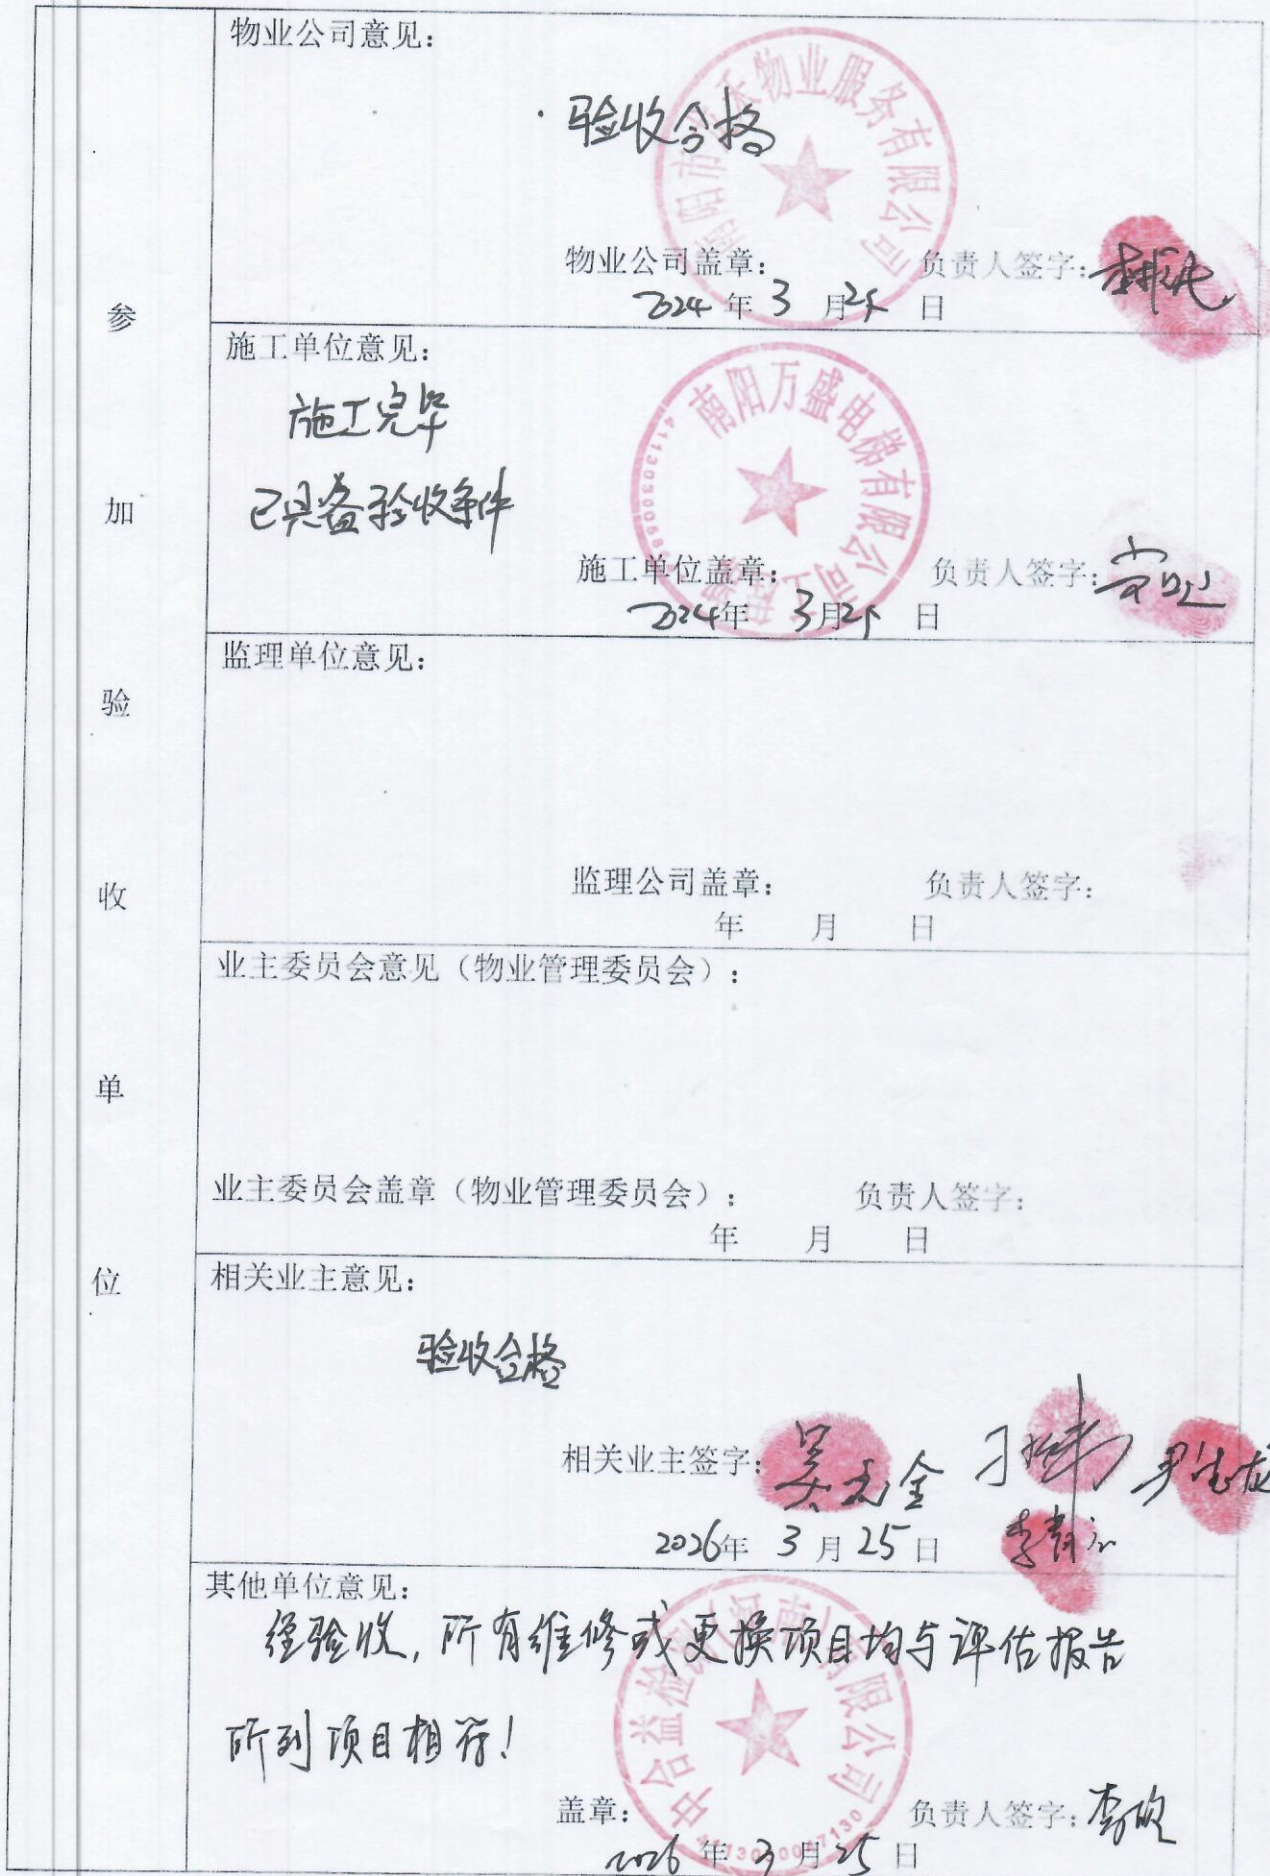 参加验收单位
物业公司意见：
验收合格
物业服务有限公司
物业公司盖章： 负责人签字：
2024年3月25日
施工单位意见：
施工完毕
已具备验收条件
南阳万盛电梯有限公司
施工单位盖章： 负责人签字：
2024年3月25日
监理单位意见：
监理公司盖章： 负责人签字：
年 月 日
业主委员会意见（物业管理委员会）：
业主委员会盖章（物业管理委员会）： 负责人签字：
年 月 日
相关业主意见：
验收合格
相关业主签字：
2026年3月25日
其他单位意见：
经验收，所有维修或更换项目均与评估报告
所列项目相符！
中合益检测（河南）有限公司
盖章： 负责人签字：
2026年3月25日